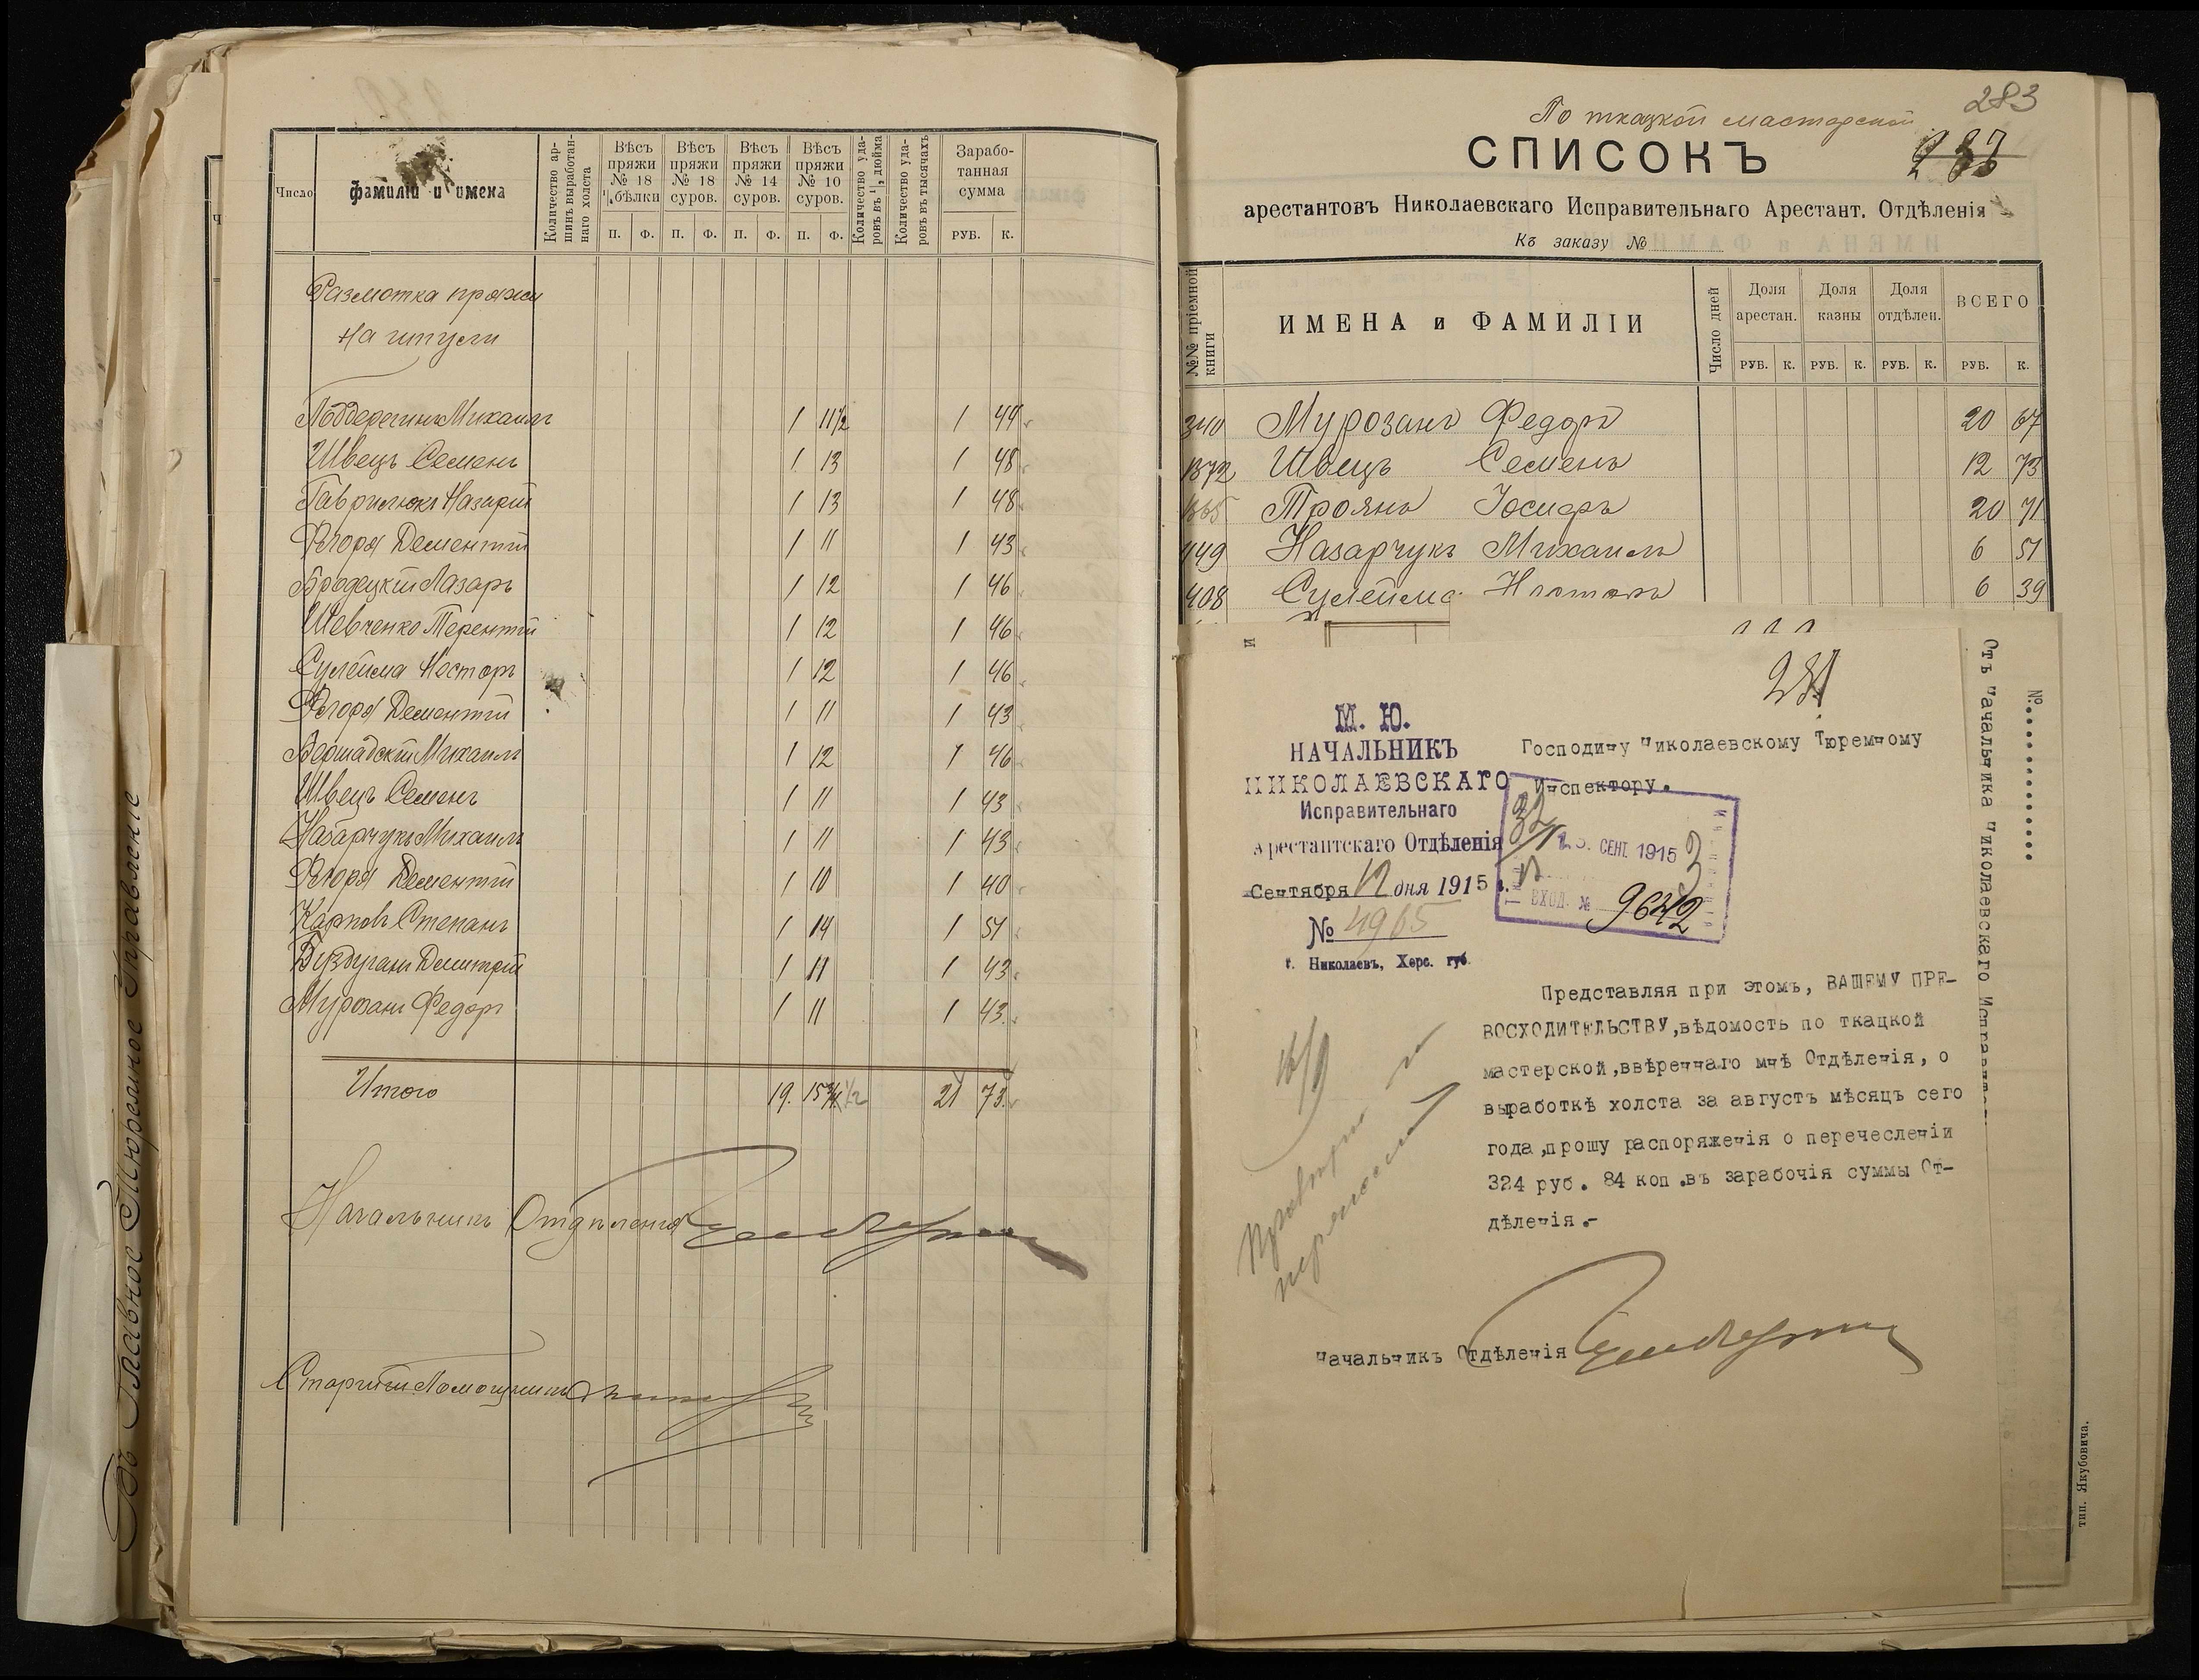 Число
Фамиліи и имена
Количество ар-
шинъ выработан-
наго холста
Вѣсъ пряжи № 18 ½ бѣлки
Вѣсъ пряжи № 18 суров.
Вѣсъ пряжи № 14 суров.
Вѣсъ пряжи № 10 суров.
Количество уда-
ровъ въ ¼ дюйма
Количество уда-
ровъ въ тысячахъ
Зарабо-
танная
сумма
П. Ф. П. Ф. П. Ф. П. Ф. РУБ. К.
Размотка пряжи
на шпули
Михаилъ 1 11½ 1 44
Швецъ Семенъ 1 13 1 48
Гаврилюкъ Назарій 1 13 1 48
Дементій 1 11 1 43
Бродецкій Лазарь 1 12 1 46
Шевченко Терентій 1 12 1 46
Сулейма Несторъ 1 12 1 46
Дементій 1 11 1 43
Бершадскій Михаилъ 1 12 1 46
Швецъ Семенъ 1 11 1 43
Назарчукъ Михаилъ 1 11 1 43
Дементій 1 10 1 40
Карповъ Степанъ 1 14 1 51
Бузduганъ Димитрій 1 11 1 43
Мурозанъ Федоръ 1 11 1 43
Итого 19. 15 ½ 21 73
Начальникъ Отдѣленія
Старшій Помощникъ
Въ Главное Тюремное Управленіе
283
По ткацкой мастерской
СПИСОКЪ
арестантовъ Николаевскаго Исправительнаго Арестант. Отдѣленія
Къ заказу №
№№ пріемной
книги
ИМЕНА и ФАМИЛІИ
Число дней
Доля
арестан.
Доля
казны
Доля
отдѣлен.
ВСЕГО
РУБ. К. РУБ. К. РУБ. К. РУБ. К.
340 Мурозанъ Федоръ 20 67
1372 Швецъ Семенъ 12 73
Троянъ Іосифъ 20 71
449 Назарчукъ Михаилъ 6 51
408 Сулейма Несторъ 6 39
М. Ю.
НАЧАЛЬНИКЪ
НИКОЛАЕВСКАГО
Исправительнаго
Арестантскаго Отдѣленія
Сентября 12 дня 1915 г.
№ 4965
г. Николаевъ, Херс. губ.
Господину Николаевскому Тюремному
Инспектору.
СЕНТ. 1915
ВХОД. № 9642
Представляя при этомъ, ВАШЕМУ ПРЕ-
ВОСХОДИТЕЛЬСТВУ, вѣдомость по ткацкой
мастерской, ввѣреннаго мнѣ Отдѣленія, о
выработкѣ холста за августъ мѣсяцъ сего
года, прошу распоряженія о перечесленіи
324 руб. 84 коп. въ зарабочія суммы От-
дѣленія.-
16/9
Начальникъ Отдѣленія
Отъ Начальника Николаевскаго
№
тип. Якубовича.